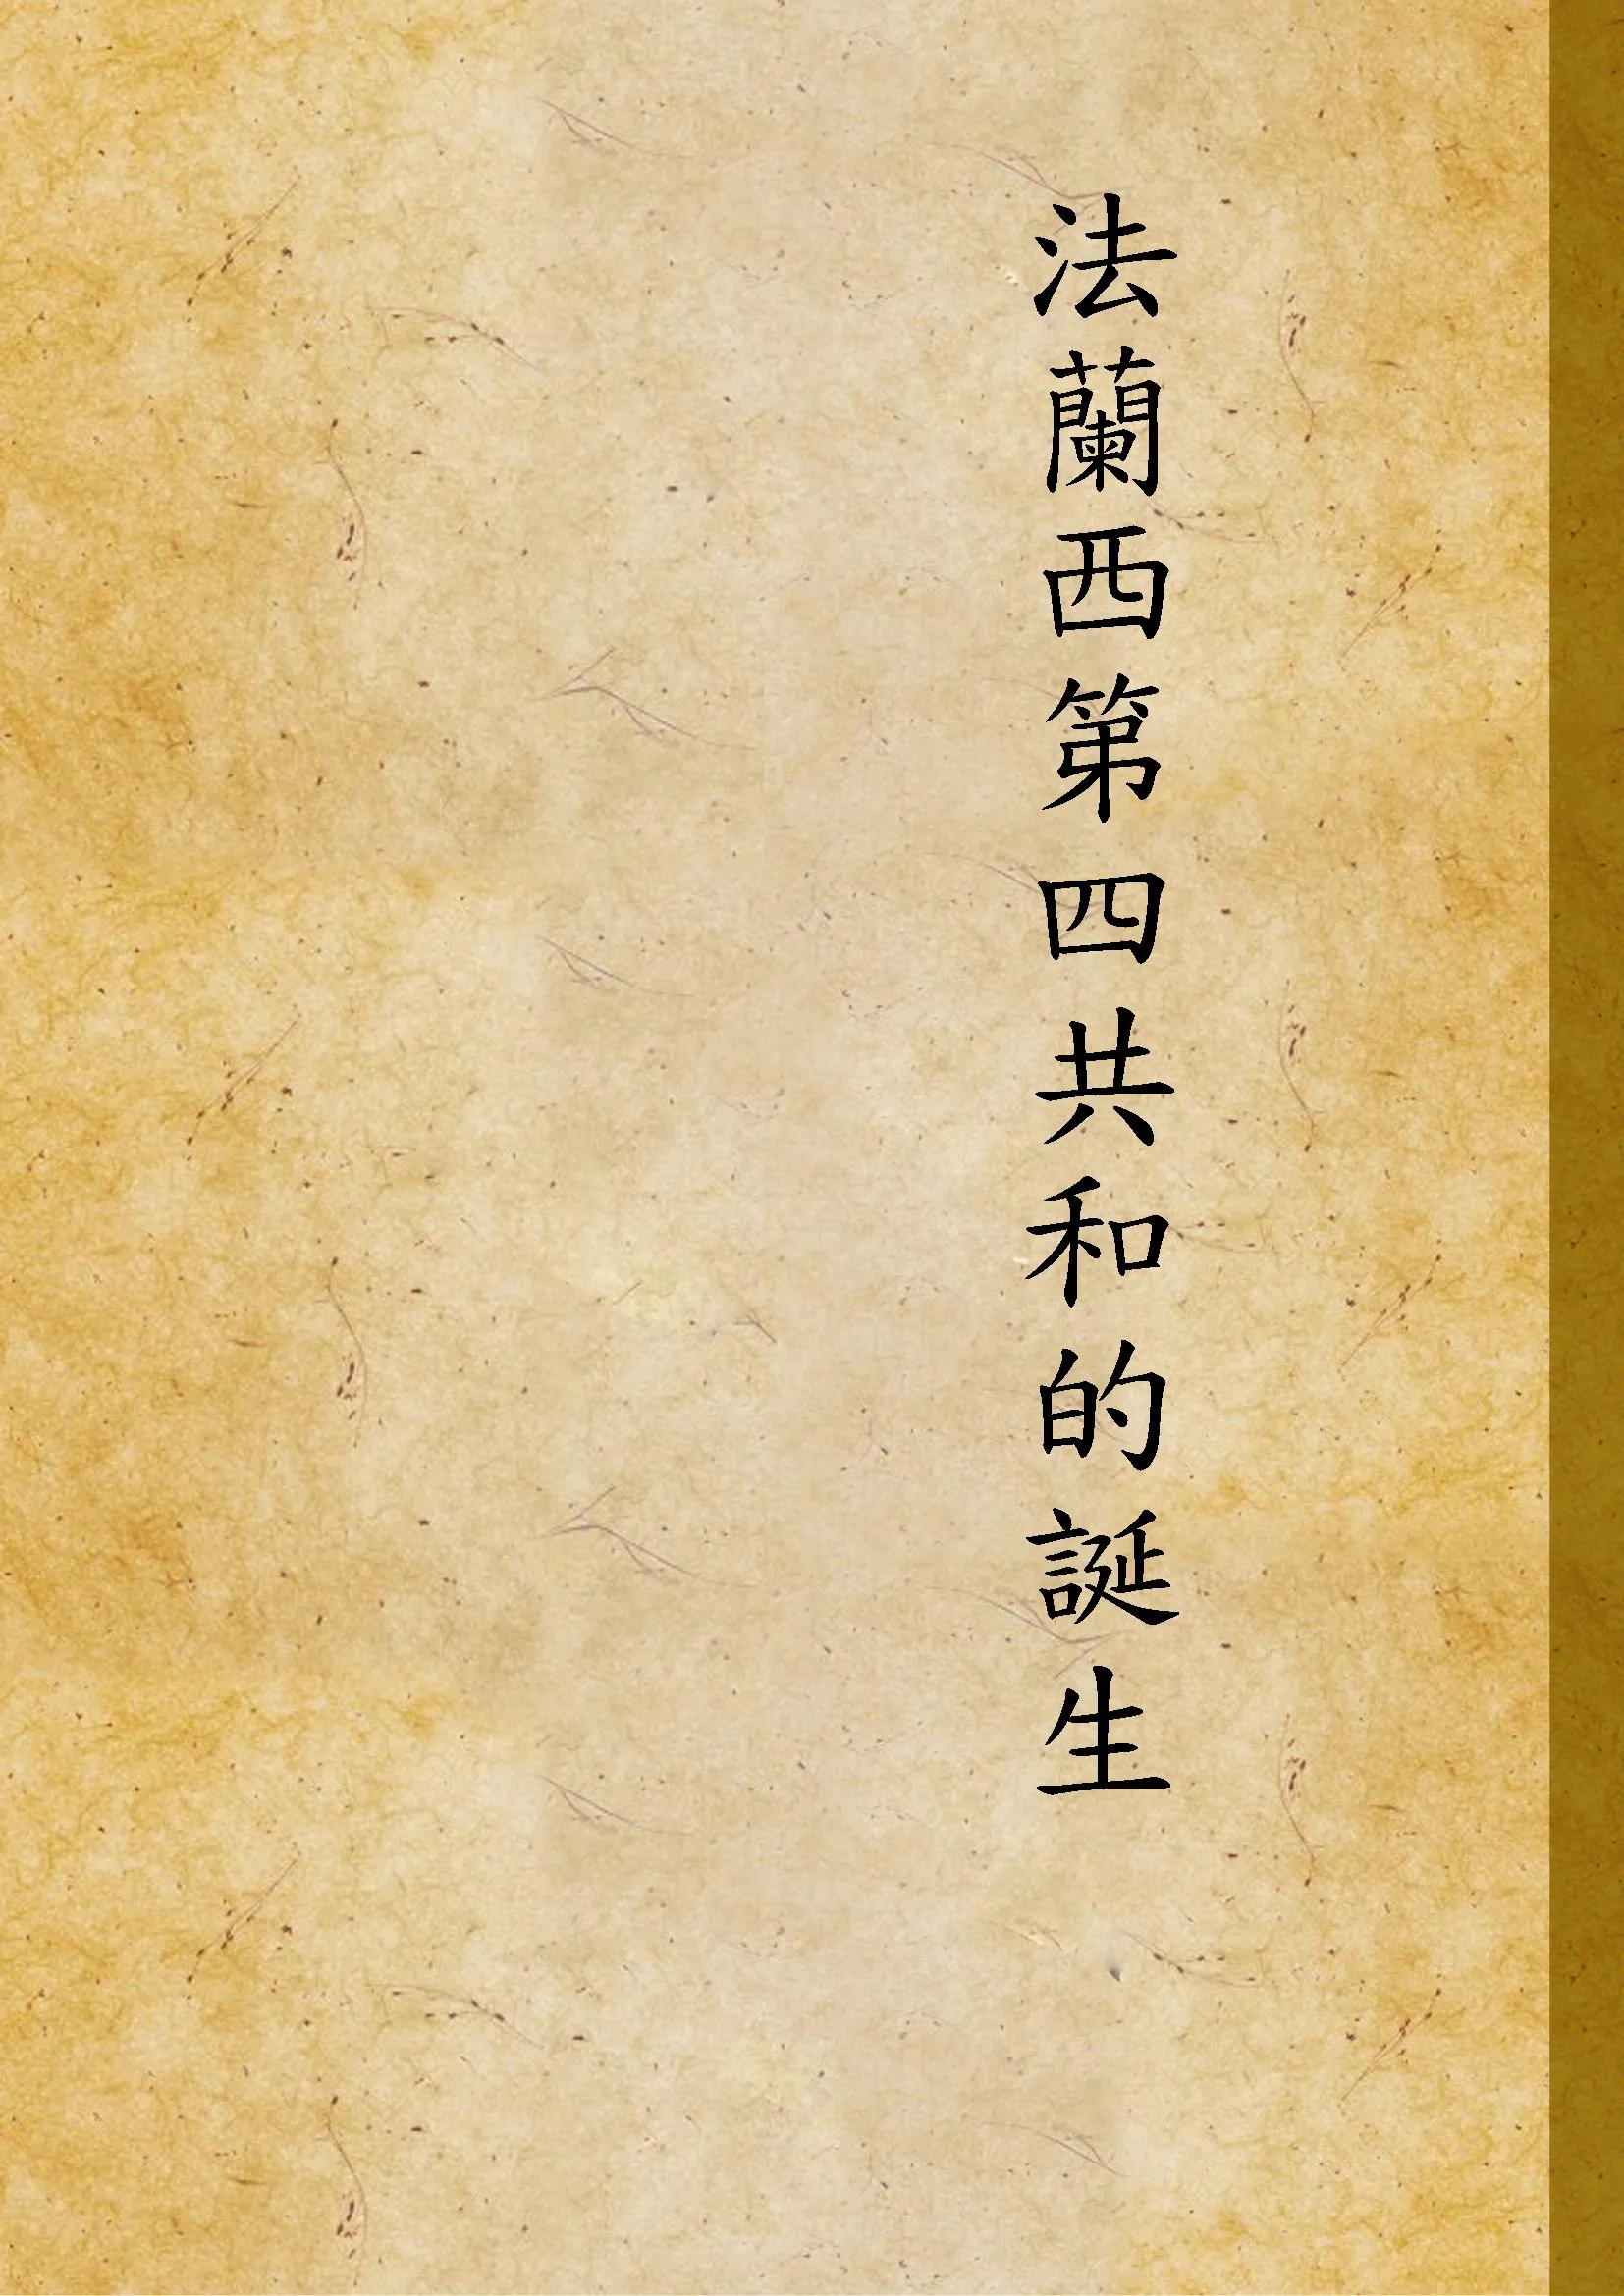 法蘭西第四共和的誕生